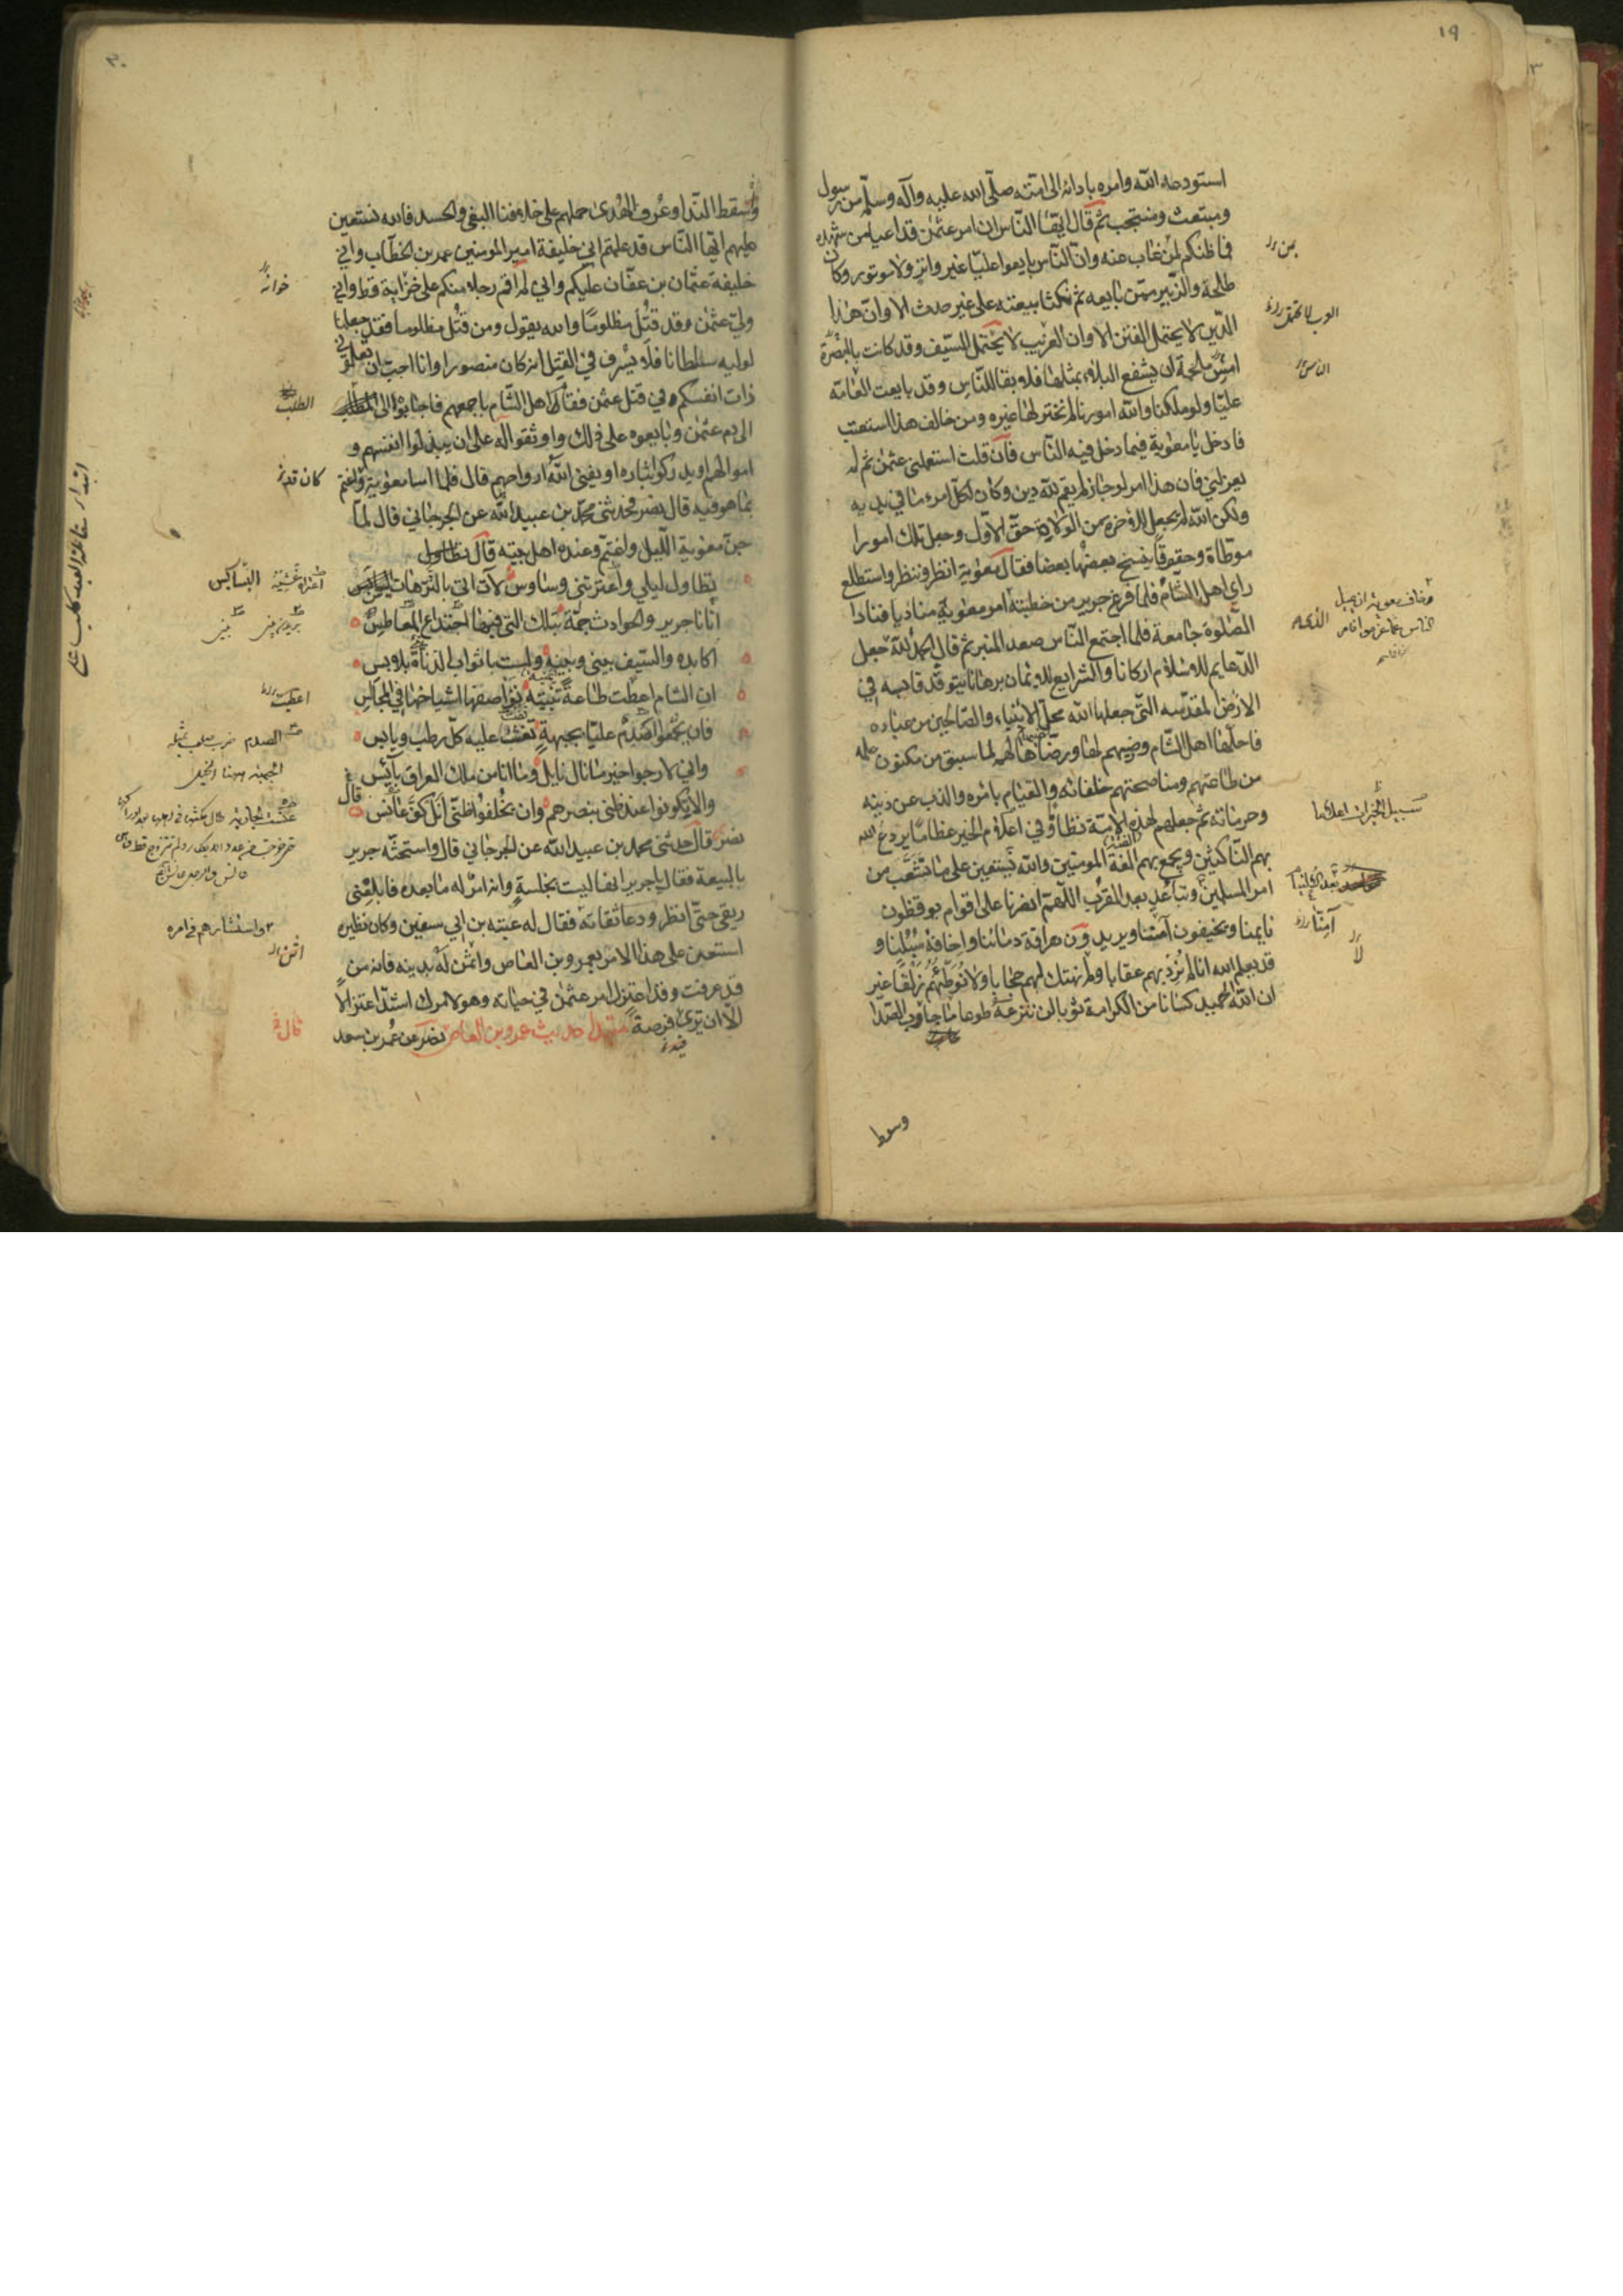 ١٩
استودعه الله وامره بادائه الى امته صلّى الله عليه وآله وسلّم من رسول
ومبتعث ومنتجب ثم قال ايّها النّاس ان امر عثمن قد اعيا من شهده
فما ظنكم بمن غاب عنه وانّ النّاس بايعوا عليّا غير واتر ولا موتور وكان
طلحة والزّبير ممّن بايعه ثم نكثا بيعته على غير حدث الا وانّ هذا
الدّين لا يحتمل الفتن الا وان العرب لا يحتمل السّيف وقد كانت بالبصرة
امس ملحمة ان يشفع البلاء بمثلها فلا بقا للنّاس وقد بايعت العامّة
عليّا ولو ملكنا والله امورنا لم نختر لها غيره ومن خالف هذا استعتب
فادخل يا معوية فيما دخل فيه النّاس فان قلت استعملنى عثمن ثم لم
يعزلني فان هذا امر لو جاز لم يقم لله دين وكان لكلّ امرء ما في يديه
ولكن الله لم يجعل للآخر من الولاة حقّ الاوّل وجعل تلك امورا
موطّاة وحقوقا ينسخ بعضها بعضا فقال معوية انظر وننظر واستطلع
راى اهل الشّام فلما فرغ جرير من خطبته امر معوية مناديا فنادا
الصّلوة جامعة فلما اجتمع النّاس صعد المنبر ثم قال الحمد لله جعل
الدّعايم للاسلام اركانا والشرايع للايمان برهانا يتوقّد قابسه في
الارض المقدّسه التّي جعلها الله محلّ الانبياء والصّالحين من عباده
فاحلّها اهل الشّام ورضيهم لها ورضاها لهم لما سبق من مكنون علمه
من طاعتهم ومناصحتهم خلفائه والقيام بامره والذب عن دينه
وحرماته ثم جعلهم لهذه الامّة نظاما وفي اعلام الخير عظاما يردع الله
بهم النّاكثين ويجمع بهم الفة المومنين والله نستعين على ما تشعّب من
امر المسلمين وتباعد بعد القرب اللّهمّ انصرنا على اقوام يوقظون
نايمنا ويخيفون آمننا ويريدون هراقة دمائنا واخافة سبلنا و
قد يعلم الله انا لم نرد بهم عقابا ولا نهتك لهم حجابا ولا نوطّئهم زلقا غير
ان الله الحميد كسانا من الكرامة ثوبا لن ننزعه طوعا ما جاوب الصّدا
وسقط
٢٠
وسقط النّدا وعرف الهدى حملهم على خلافنا البغي والحسد فالله نستعين
عليهم ايّها النّاس قد علمتم اني خليفة امير المومنين عمر بن الخطّاب واني
خليفة عثمان بن عفّان عليكم واني لم اقم رجلا منكم على خزاية قط واني
وليّ عثمن وقد قتل مظلومًا والله يقول ومن قتل مظلوما فقد جعلنا
لوليه سلطانا فلا يسرف في القتل انه كان منصورا وانا احبّ ان تعلموني
ذات انفسكم في قتل عثمن فقام اهل الشّام باجمعهم فاجابوا الى
الى دم عثمن وبايعوه على ذلك واوثقوا له على ان يبذلوا انفسهم و
اموالهم او يدركوا بثاره او يفني الله ارواحهم قال فلما امسا معوية واغتم
بما هو فيه قال نصر فحدثنى محمّد بن عبيد الله عن الجرجاني قال لمّا
جنّ معوية اللّيل واغتمّ وعنده اهل بيته قال
تطاول ليلي واعترتني وساوس لآت اتى بالتّرهات البسابس
أتانا جرير والحوادث جمّة بتلك التى فيها اجتداع المعاطس
اكابده والسّيف بيني وبينه ولست باثواب الدّناءة بلابس
ان الشام اعطت طاعة يمنيّة تواصفها اشياخها في المجالس
فان يجمعوا اصدم عليّا بجبهة تفتّ عليه كلّ رطب ويابس
واني لارجوا خير ما نال نايل وما انا من ملك العراق بآئيس
والا يكونوا عند ظنى بنصرهم وان يخلفوا ظنّى اتل كفّ عانس قال
نصر قال حدثنى محمد بن عبيد الله عن الجرجاني قال واستحثّه جرير
بالبيعة فقال يا جرير انها ليست بخلسة وانه امر له ما بعده فابلعنى
ريقي حتّى انظر ودعا ثقاته فقال له عتبة بن ابي سفين وكان نظيره
استعن على هذا الامر بعمرو بن العاص واثمن له بدينه فانه من
قد عرفت وقد اعتزل امر عثمن في حياته وهو لامرك اشدّ اعتزالا
الّا ان يرى فرصة مبتدا حديث عمرو بن العاص نصر عن عمر بن سعد
الطلب
كان قدم
البسابس
واستشارهم في امره
قال